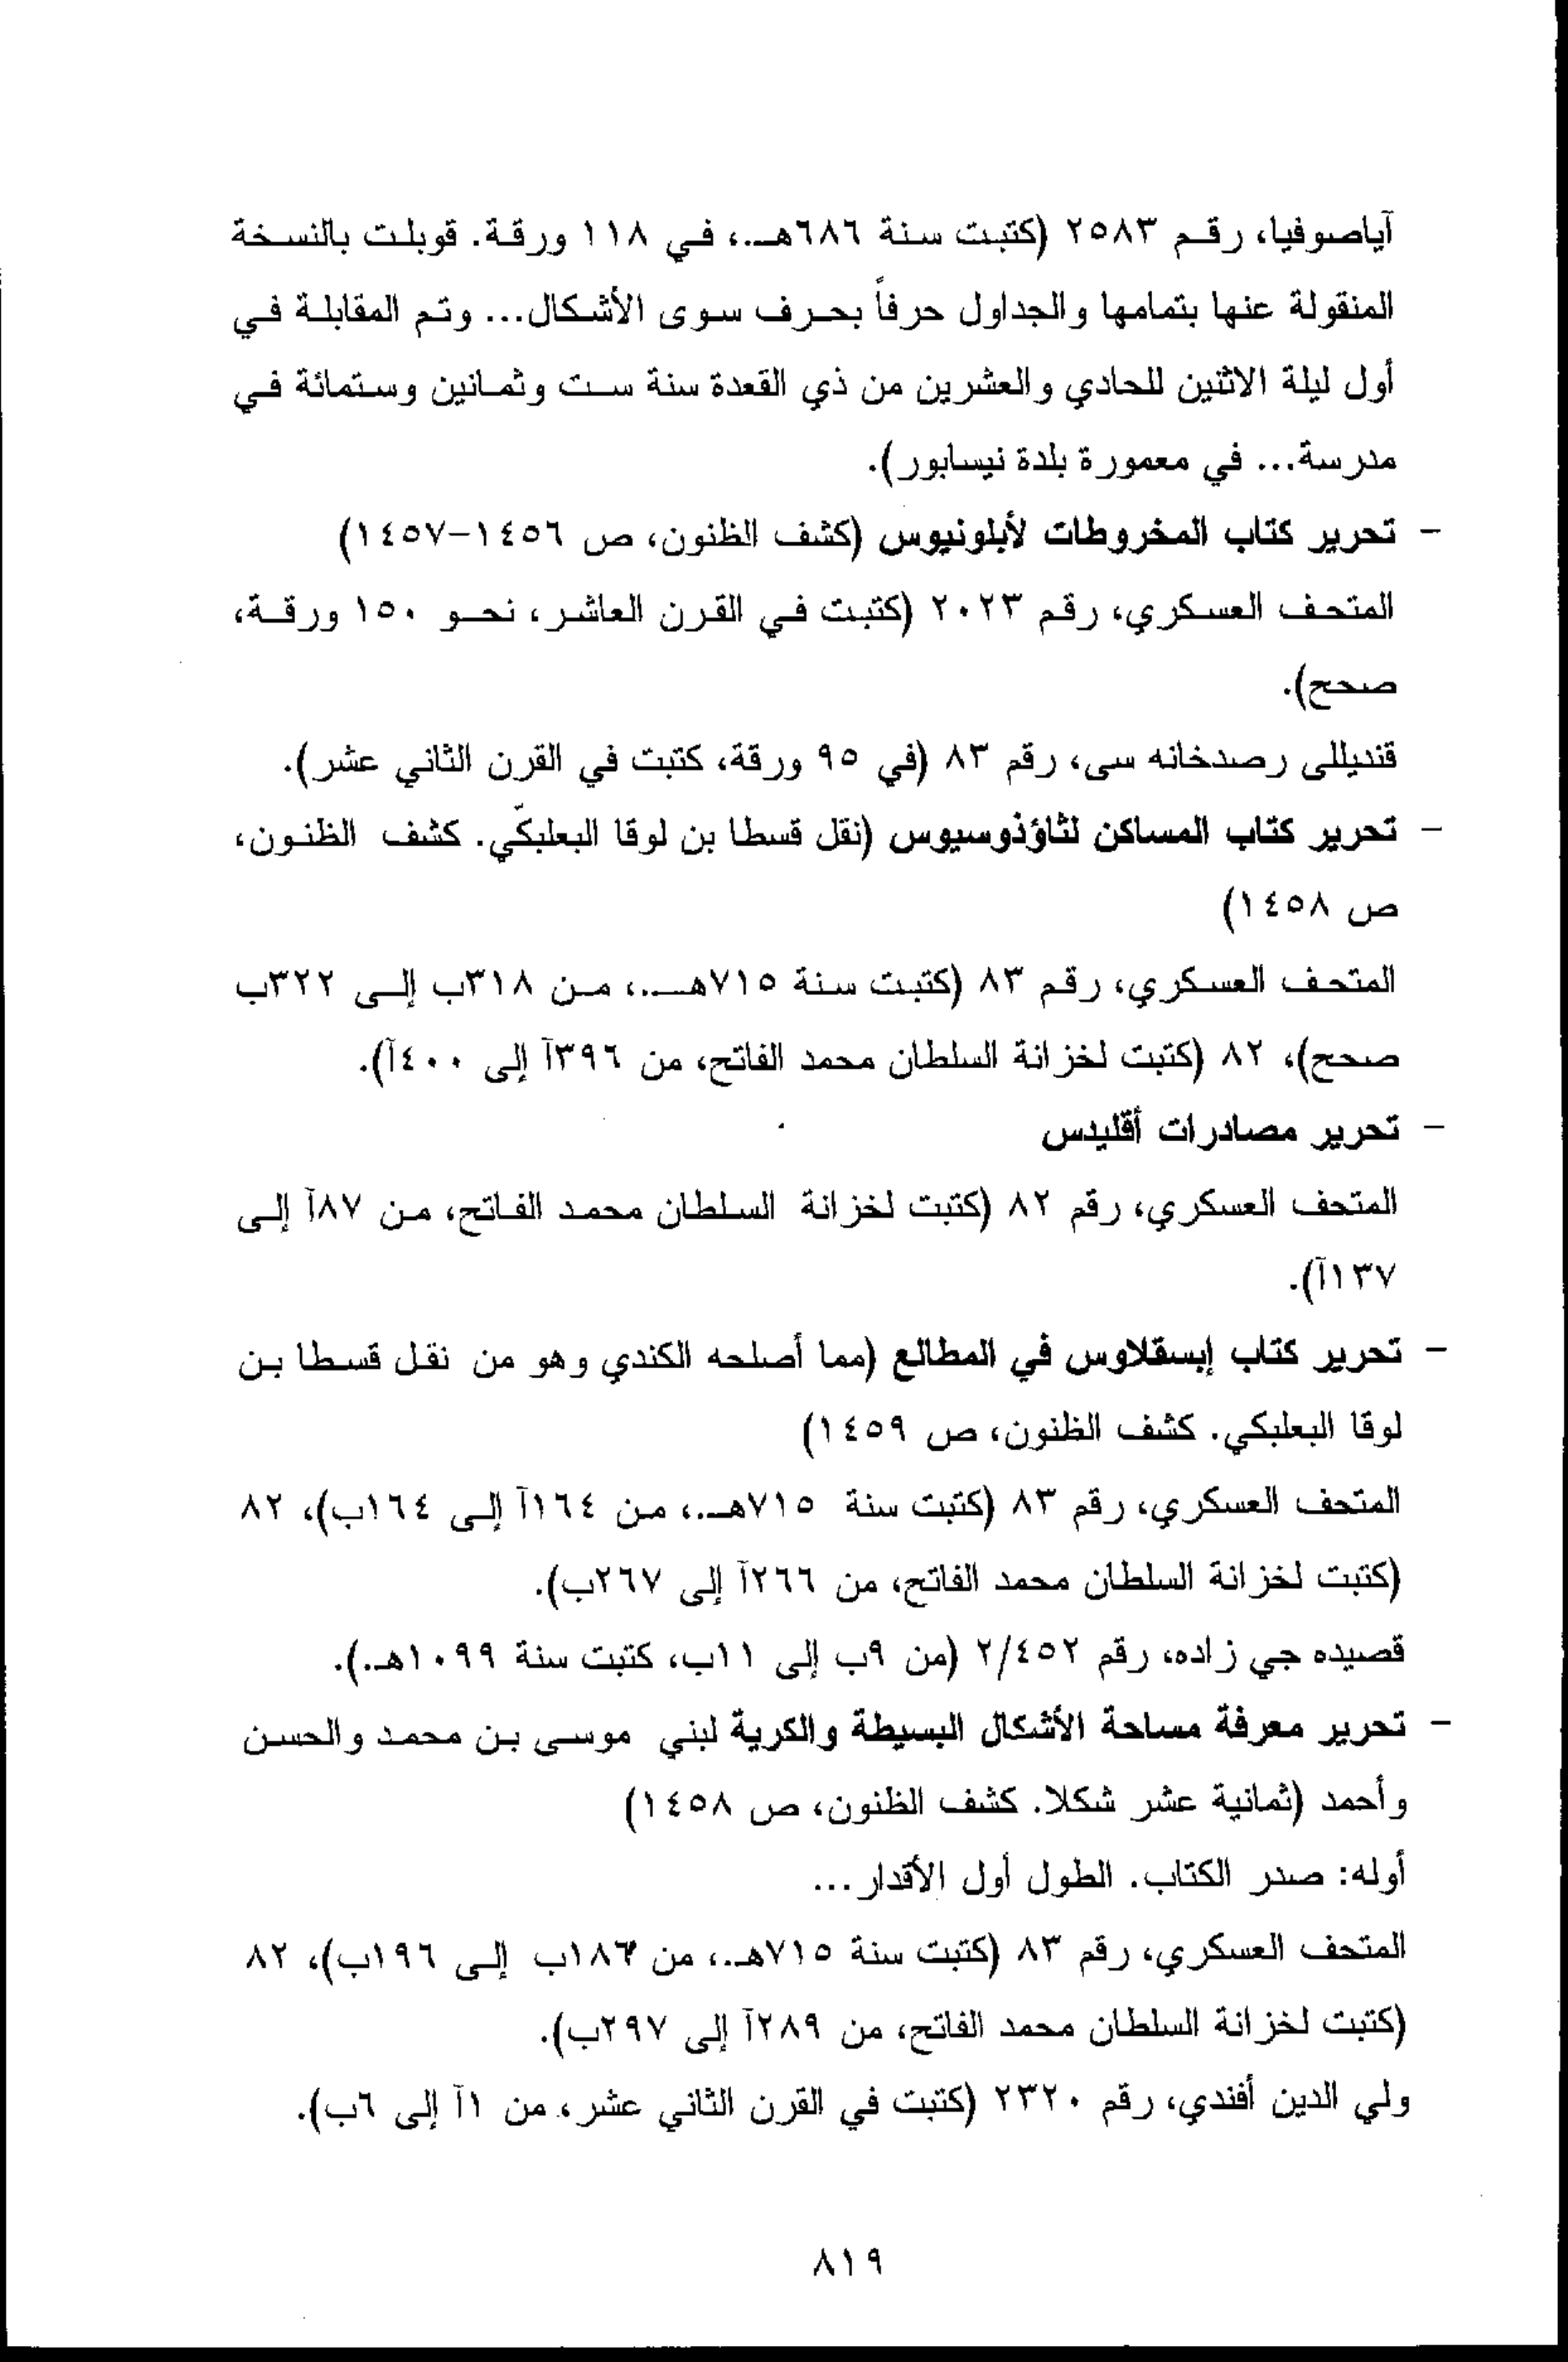 آياصوفيا، رقم ٢٥٨٣ (كتبت سنة ٦٨٦هـ..، في ١١٨ ورقة. قوبلت بالنسخة
المنقولة عنها بتمامها والجداول حرفاً بحرف سوى الأشكال... وتم المقابلة في
أول ليلة الاثنين للحادي والعشرين من ذي القعدة سنة ست وثمانين وستمائة في
مدرسة... في معمورة بلدة نيسابور).
- تحرير كتاب المخروطات لأبلونيوس (كشف الظنون، ص ١٤٥٦-١٤٥٧)
المتحف العسكري، رقم ٢٠٢٣ (كتبت في القرن العاشر، نحو ١٥٠ ورقة،
صحح).
قنديللى رصدخانه سى، رقم ٨٣ (في ٩٥ ورقة، كتبت في القرن الثاني عشر).
- تحرير كتاب المساكن لثاؤذوسيوس (نقل قسطا بن لوقا البعلبكّي. كشف الظنون،
ص ١٤٥٨)
المتحف العسكري، رقم ٨٣ (كتبت سنة ٧١٥هـ..، من ٣١٨ب إلى ٣٢٢ب
صحح)، ٨٢ (كتبت لخزانة السلطان محمد الفاتح، من ٣٩٦آ إلى ٤٠٠آ).
- تحرير مصادرات أقليدس
المتحف العسكري، رقم ٨٢ (كتبت لخزانة السلطان محمد الفاتح، من ٨٧آ إلى
١٣٧آ).
- تحرير كتاب إبسقلاوس في المطالع (مما أصلحه الكندي وهو من نقل قسطا بن
لوقا البعلبكي. كشف الظنون، ص ١٤٥٩)
المتحف العسكري، رقم ٨٣ (كتبت سنة ٧١٥هـ..، من ١٦٤آ إلى ١٦٤ب)، ٨٢
(كتبت لخزانة السلطان محمد الفاتح، من ٢٦٦آ إلى ٢٦٧ب).
قصيده جي زاده، رقم ٢/٤٥٢ (من ٩ب إلى ١١ب، كتبت سنة ١٠٩٩هـ.).
- تحرير معرفة مساحة الأشكال البسيطة والكرية لبني موسى بن محمد والحسن
وأحمد (ثمانية عشر شكلا. كشف الظنون، ص ١٤٥٨)
أوله: صدر الكتاب. الطول أول الأقدار...
المتحف العسكري، رقم ٨٣ (كتبت سنة ٧١٥هـ..، من ١٨٦ب إلى ١٩٦ب)، ٨٢
(كتبت لخزانة السلطان محمد الفاتح، من ٢٨٩آ إلى ٢٩٧ب).
ولي الدين أفندي، رقم ٢٣٢٠ (كتبت في القرن الثاني عشر، من ١آ إلى ٦ب).
٨١٩